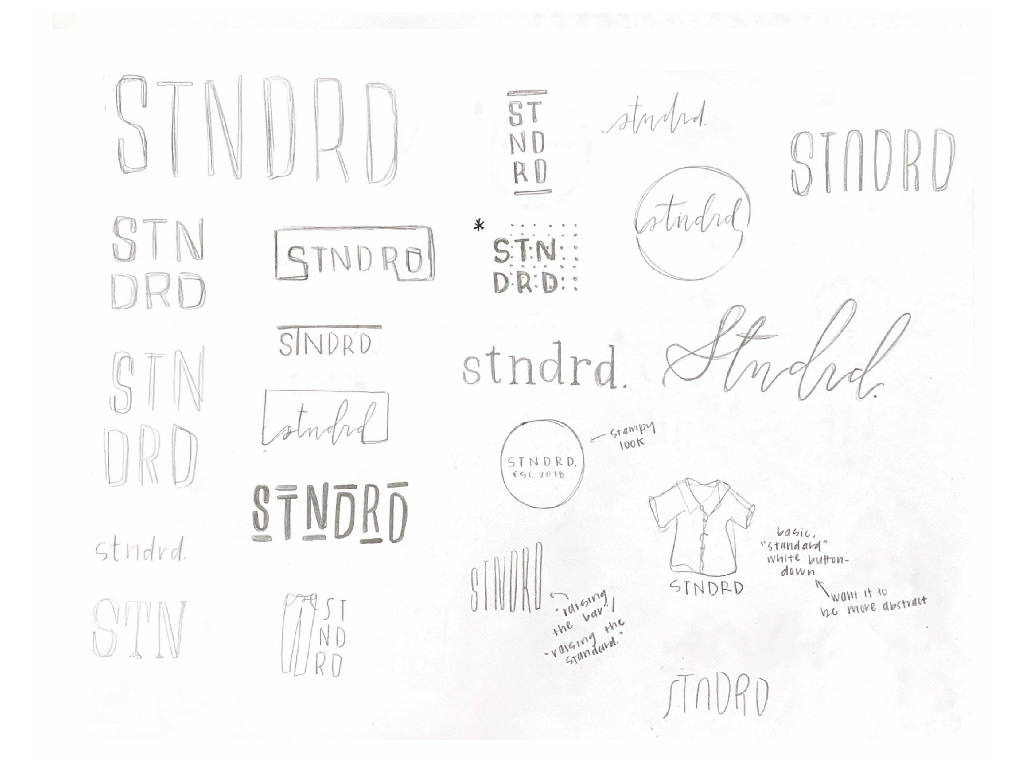 STNDRD
STN
DRD
STN
DRD
stndrd.
STN
STNDRD
STNDRD
stndrd
STNDRD
ST
ND
RD
ST
ND
RD
*
STN
DRD
stndrd.
STNDRD.
EST. 2018
stampy
look
STNDRD
"raising
the bar"/
"raising the
standard."
stndrd.
stndrd
STNDRD
Stndrd.
STNDRD
basic,
"standard"
white button-
down
want it to
be more abstract
STNDRD